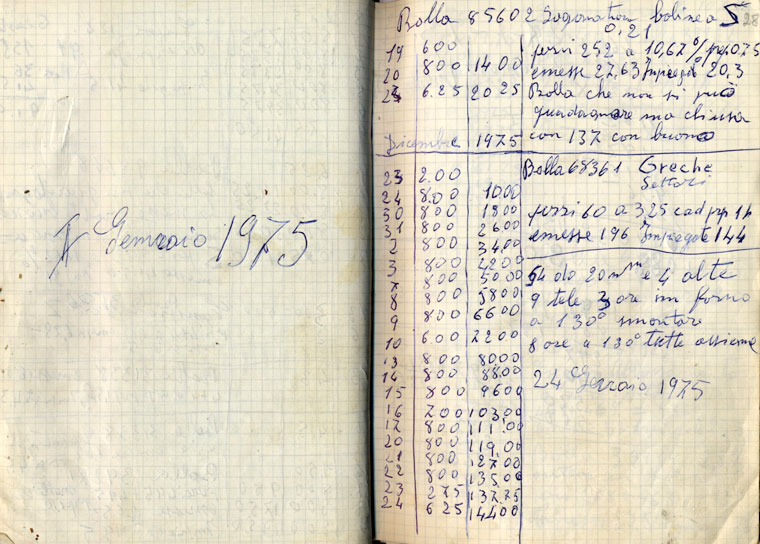 Gennaio 1975
Bolla 85602
28
0,21
19 600
20 800 1400
6.25 2025
pezzi 252 a 10,67
emesse 27,63 Impiegate 20,3
Bolla che non si può
guadagnare ma chiusa
con 137 con buono
Dicembre 1975
Bolla 68361 Greche
Settori
pezzi 60 a 325 cad
emesse 196 Impiegate 144
23 2.00
24 8.00 10.00
30 800 1800
31 800 2600
2 800 3400
3 800 4200
7 800 5000
8 800 5800
9 800 6600
10 600 7200
13 800 8000
14 800 8800
15 800 9600
16 700 103,00
17 800 111,00
20 800 119,00
21 800 127,00
22 800 135,00
23 275 137,75
24 625 144,00
54 da 20 e 4 alte
9 tele 3 ore in forno
a 130° smontare
8 ore a 130° tutte assieme
24 Gennaio 1975